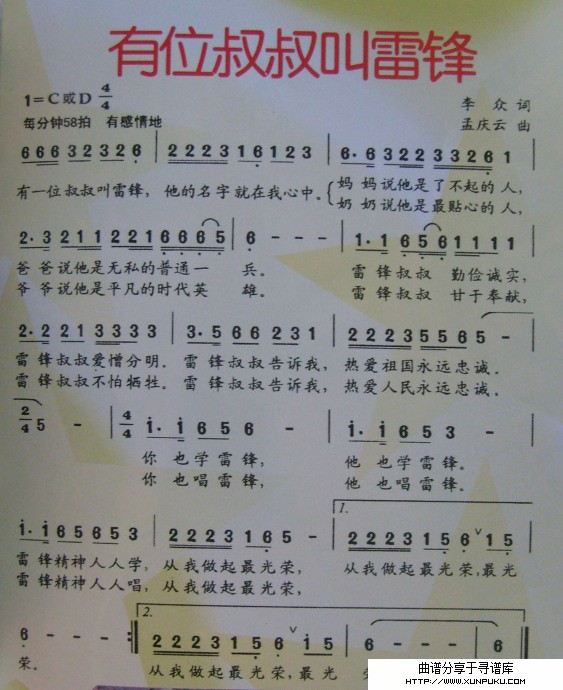 有位叔叔叫雷锋
1=C或D 4/4
李 众 词
每分钟58拍 有感情地
孟庆云 曲
6 6 6 3 2 3 2 6 | 2 2 2 3 1 6 1 2 3 | 6· 6 3 2 2 3 3 2 6 1 |
有一位叔叔叫雷锋, 他的名字就在我心中。 { 妈 妈说他是了不起的人,
奶 奶说他是最贴心的人,
2· 3 2 1 1 2 2 1 6 6 6 5 | 6 - - - | 1· 1 6 5 6 1 1 1 1 |
爸 爸说他是无私的普通一 兵。 雷 锋叔叔 勤俭诚实,
爷 爷说他是平凡的时代英 雄。 雷 锋叔叔 甘于奉献,
2· 2 2 1 3 3 3 3 | 3· 5 6 6 2 3 1 | 2 2 2 3 5 5 6 5 |
雷 锋叔叔爱憎分明。 雷 锋叔叔告诉我, 热爱祖国永远忠诚。
雷 锋叔叔不怕牺牲。 雷 锋叔叔告诉我, 热爱人民永远忠诚。
2/4 5 - | 4/4 i· i 6 5 6 - | i· i 6 5 3 - |
你 也学雷锋, 他 也学雷锋。
你 也唱雷锋, 他 也唱雷锋。
1.
i· i 6 5 6 5 3 | 2 2 2 3 1 6 5 - | 2 2 2 3 1 5 6 ∨ 1 5 |
雷 锋精神人人学, 从我做起最光荣, 从我做起最光荣,最光
雷 锋精神人人唱, 从我做起最光荣,
2.
6 - - - :| 2 2 2 3 1 5 6 ∨ i 5 | 6 - - - | 6 - - - ‖
荣。 从我做起最光荣, 最光
曲谱分享于寻谱库
WWW.XUNPUKU.COM